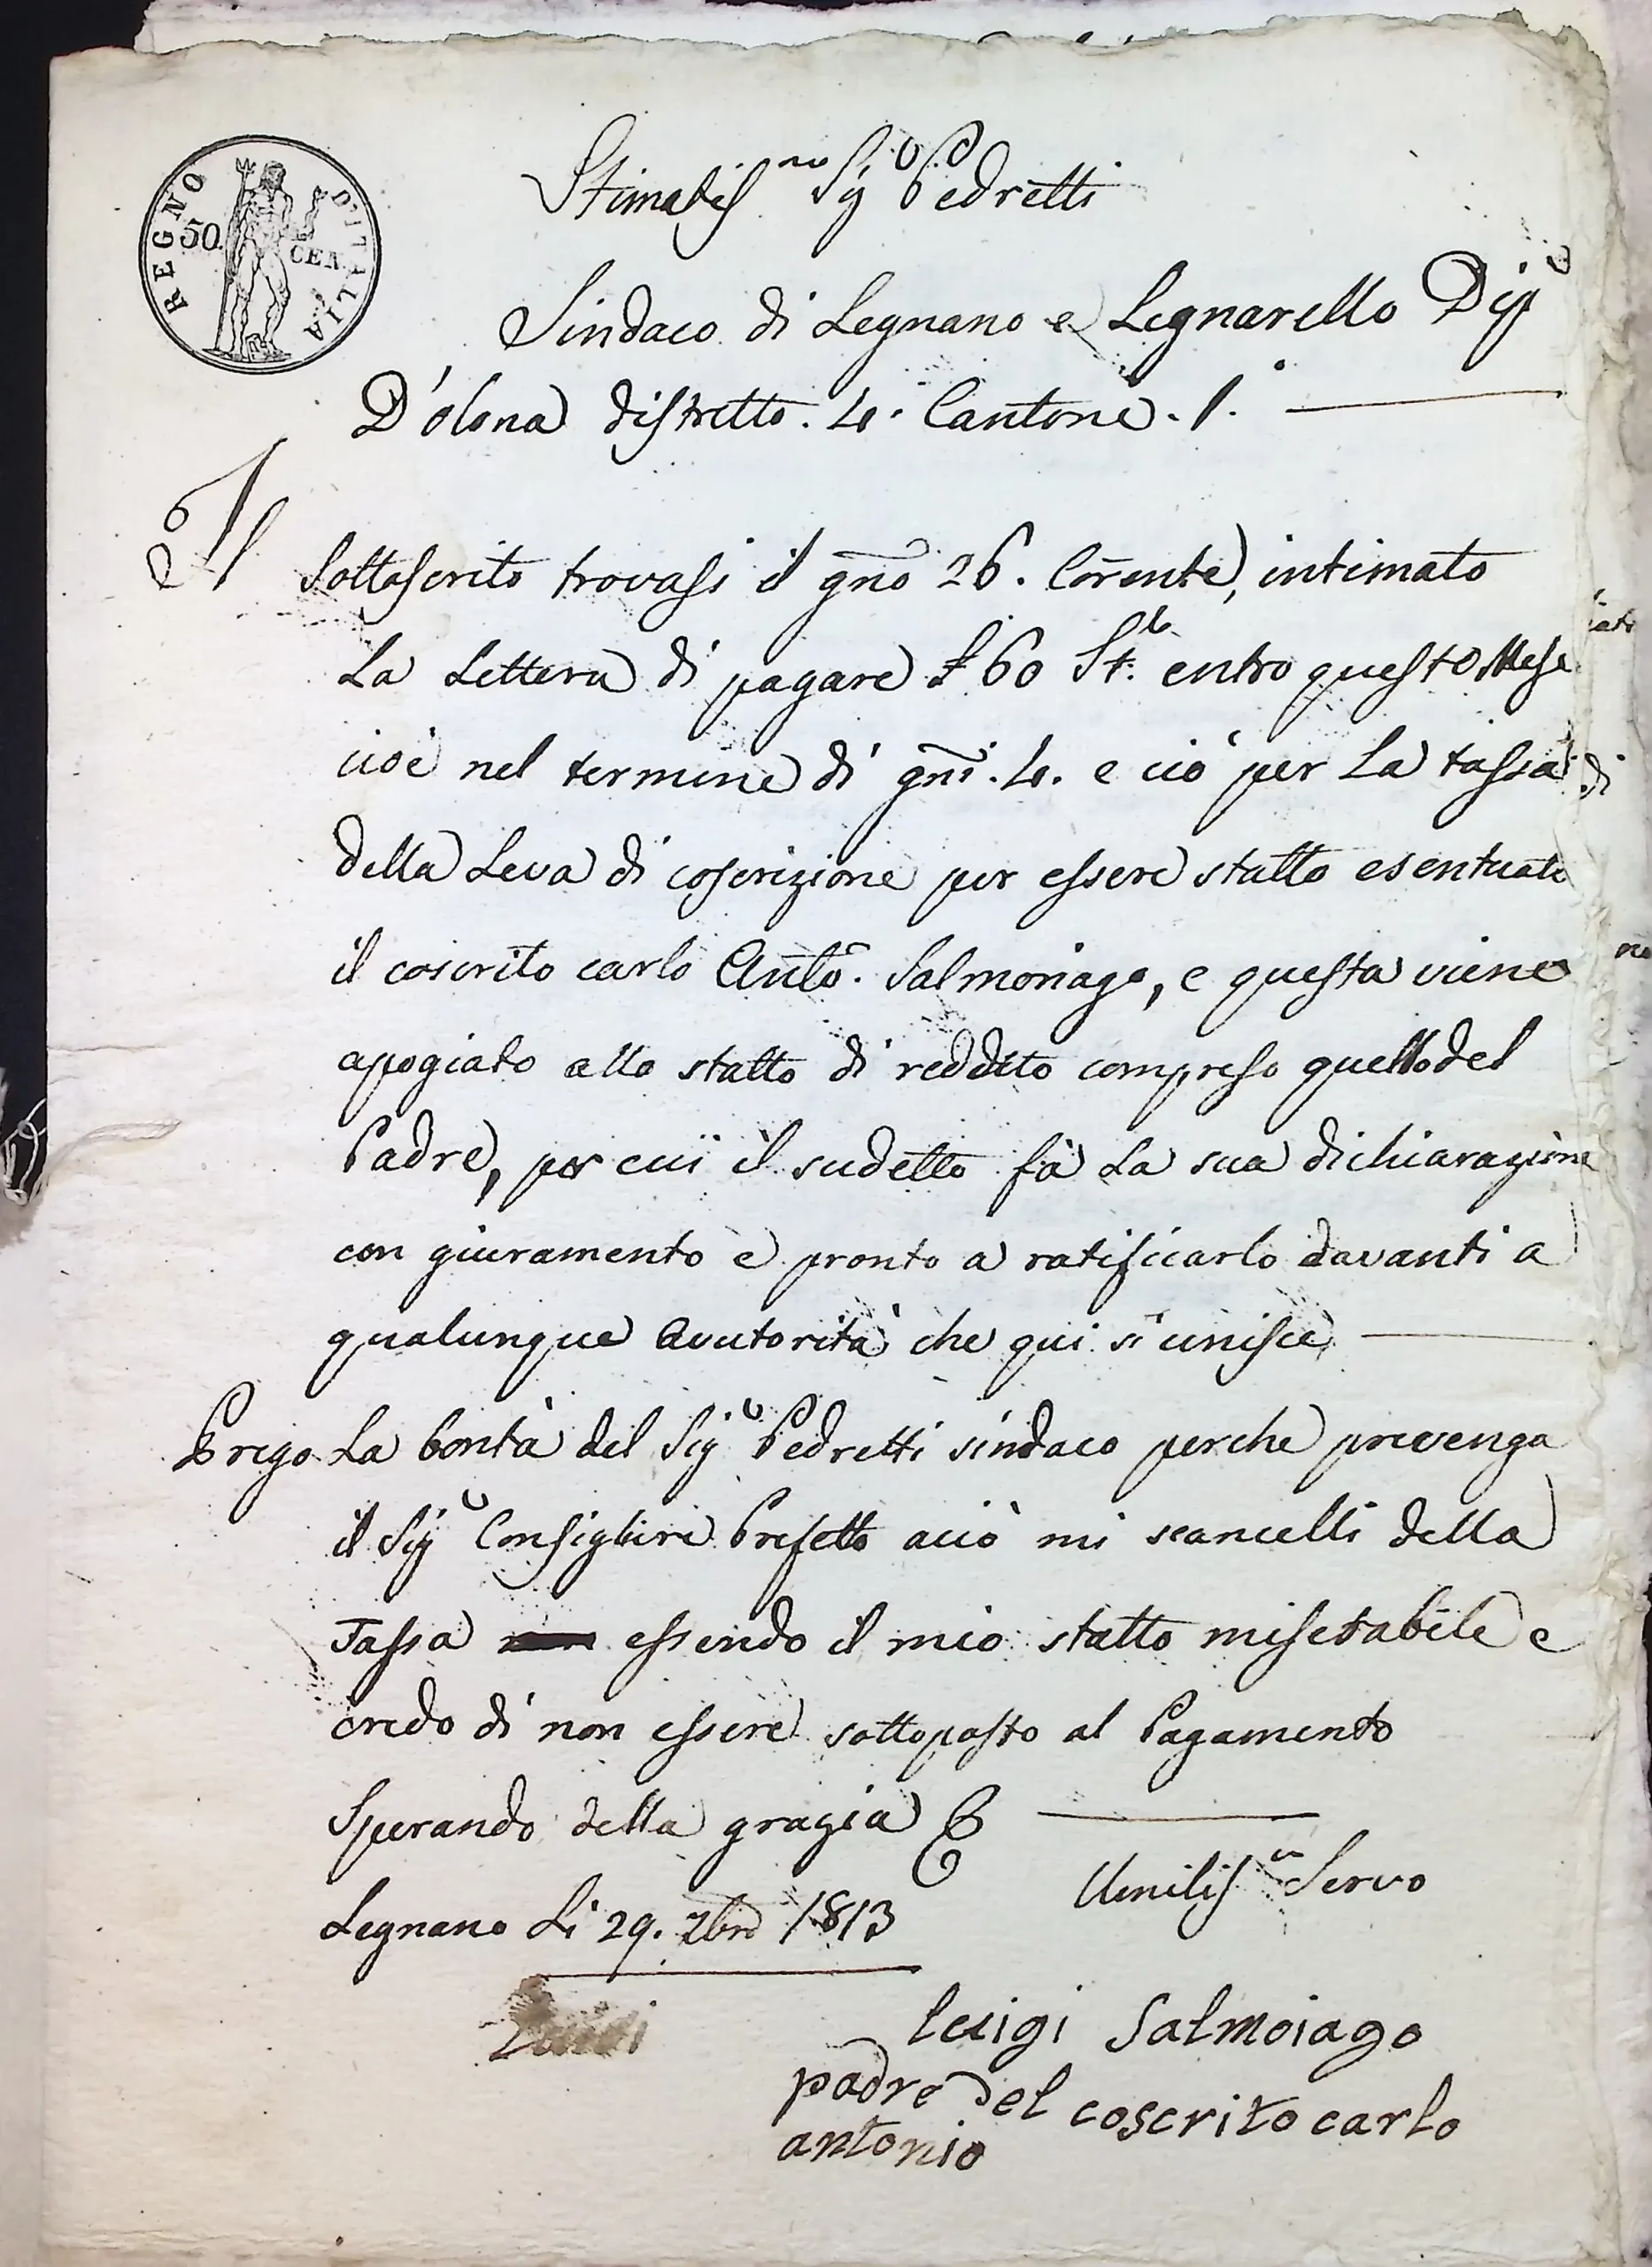 REGNO D'ITALIA
50. CEN.
Stimatis.mo Sig.r Pedretti
Sindaco di Legnano e Legnarello Dip.o
D'olona distretto. 4. Cantone. 1.°
Il Sottoscrito trovasi il gno 26. Corente, intimato
La Lettera di pagare £ 60 St.e entro questo Mese
cioè nel termine di gni. 4. e ciò per La tassa
della Leva di coscrizione per essere statto esentuato
il coscrito carlo Anto. Salmoriago, e questa viene
apogiato allo statto di reddito compreso quello del
Padre, per cui il sudetto fà La sua dichiarazione
con giuramento e pronto a ratificarlo davanti a
qualunque Auutorità che qui si unisce
Prego La bontà del Sig.r Pedretti sindaco perche prevenga
il Sig.r Consigliere Prefetto aciò mi scancelli della
Tassa essendo il mio statto miserabile e
credo di non essere sottoposto al Pagamento
Sperando della grazia
Umilis.mo Servo
Legnano Li 29. 1813
Luigi Salmoiago
padre del coscrito carlo
antonio